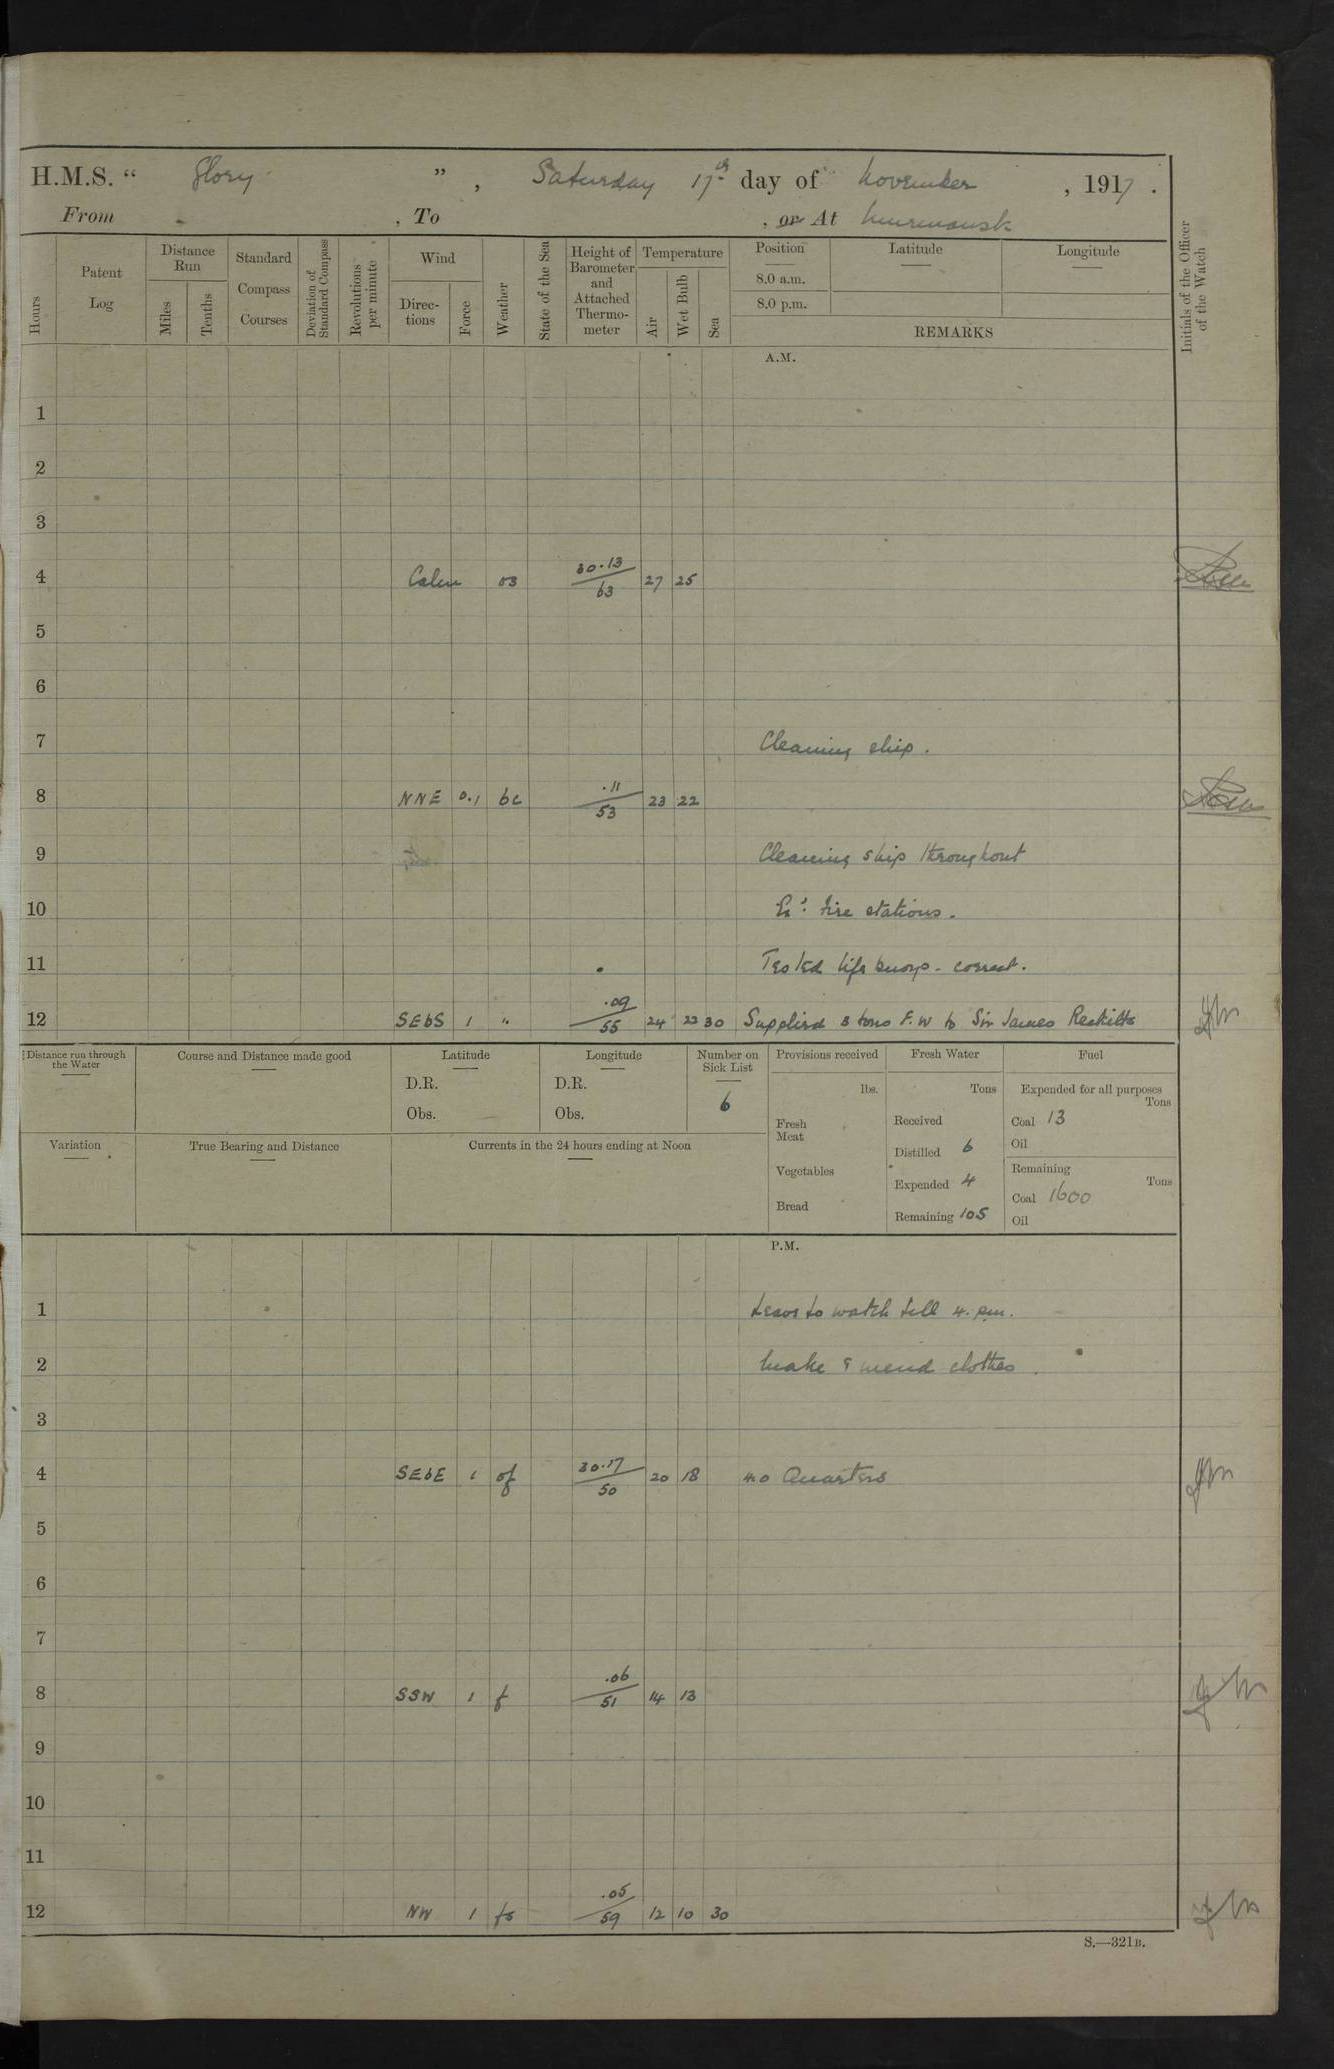 H.M.S. “ Glory ” , Saturday 17th day of November , 1917 .
From - , To , or At Murmansk
Hours
Patent Log
Distance Run
Miles
Tenths
Standard Compass Courses
Deviation of Standard Compass
Revolutions per minute
Wind
Directions
Force
Weather
State of the Sea
Height of Barometer and Attached Thermometer
Temperature
Air
Wet Bulb
Sea
Position
8.0 a.m.
8.0 p.m.
Latitude
Longitude
REMARKS
Initials of the Officer of the Watch
A.M.
1
2
3
4 Calm 03 30.13/63 27 25
5
6
7 Cleaning ship.
8 NNE 0.1 bc .11/53 23 22
9 Cleaning ship throughout
10 Ex: fire stations.
11 Tested life buoys - correct.
12 SEbS 1 " .09/55 24 22 30 Supplied 3 tons F.W to Sir James Reckitts
Distance run through the Water
Course and Distance made good
Latitude
D.R.
Obs.
Longitude
D.R.
Obs.
Number on Sick List
6
Provisions received
lbs.
Fresh Meat
Vegetables
Bread
Fresh Water
Tons
Received
Distilled 6
Expended 4
Remaining 105
Fuel
Expended for all purposes
Tons
Coal 13
Oil
Remaining
Tons
Coal 1600
Oil
Variation
True Bearing and Distance
Currents in the 24 hours ending at Noon
P.M.
1 Leave to watch till 4. pm.
2 Make & mend clothes.
3
4 SEbE 1 of 30.17/50 20 18 4.0 Quarters
5
6
7
8 SSW 1 f .06/51 14 13
9
10
11
12 NW 1 fs .05/59 12 10 30
S.—321B.